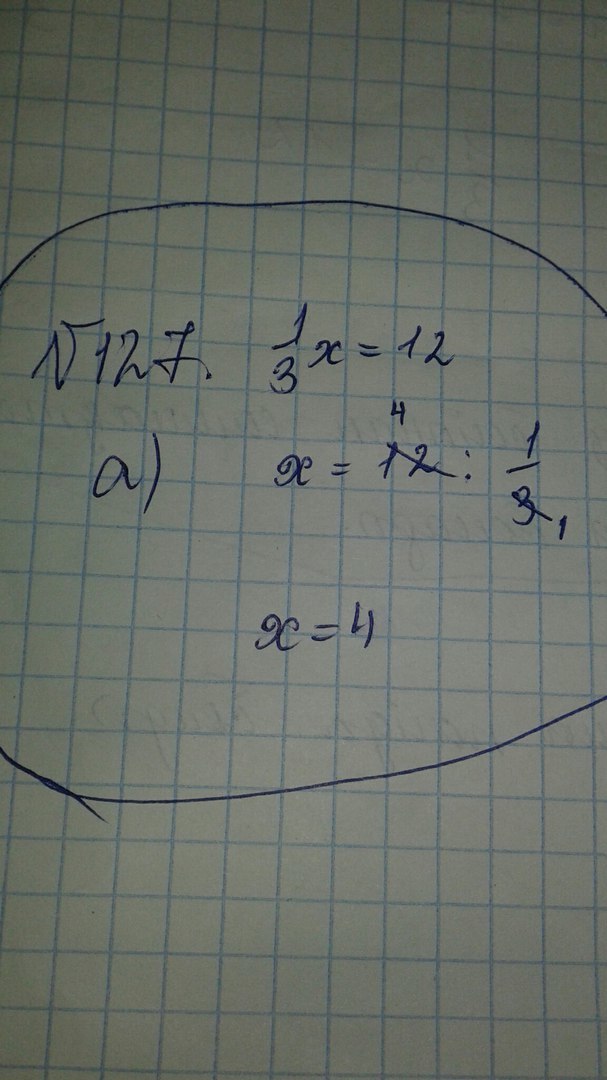 №127. 1/3 x = 12
а) x = 12 4 : 1/3 1
x = 4